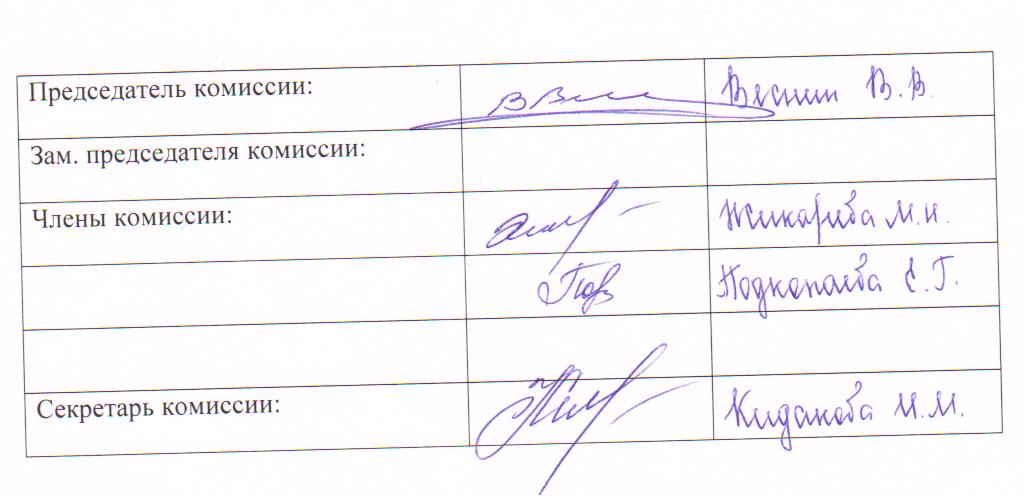 Председатель комиссии: Веснин В.В.
Зам. председателя комиссии:
Члены комиссии: Жикарева М.Н.
Подкопаева Е.Г.
Секретарь комиссии: Кидакова И.М.